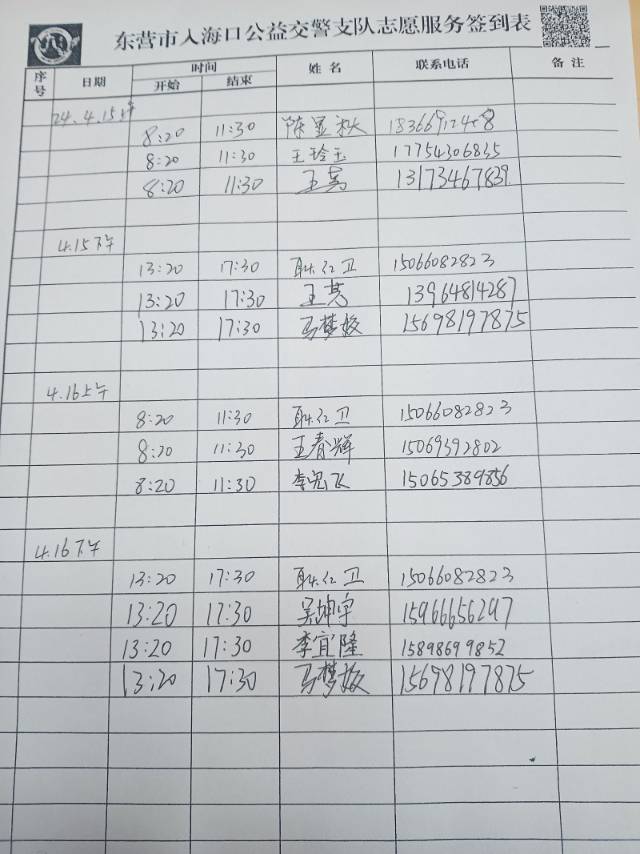 东营市入海口公益交警支队志愿服务签到表
序号 日期 时间 姓名 联系电话 备注
开始 结束
24.4.15上午
8:20 11:30 陈显秋
8:20 11:30 王玲玉 17754306835
8:20 11:30 王英 13173467839
4.15下午
13:20 17:30 耿红卫 15066082823
13:20 17:30 王英 13964814287
13:20 17:30 马梦姣 15698197875
4.16上午
8:20 11:30 耿红卫 15066082823
8:20 11:30 王春辉 15069392802
8:20 11:30 李 飞 15065389856
4.16下午
13:20 17:30 耿红卫 15066082823
13:20 17:30 吴坤宇 15966656297
13:20 17:30 李宜隆 15898699852
13:20 17:30 马梦姣 15698197875